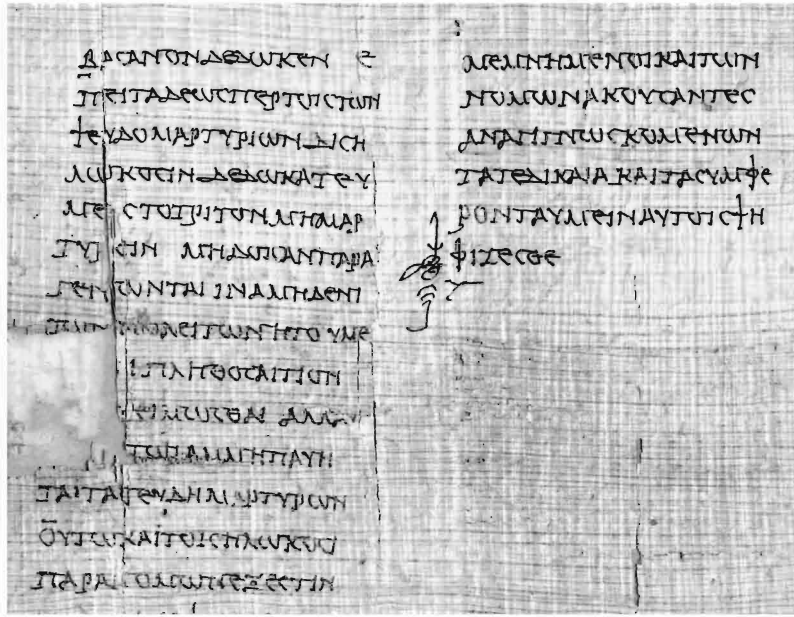 ΒΑΣΑΝΟΝΔΕΔΩΚΕΝ Ε
ΠΕΙΤΑΔΕΩΣΠΕΡΤΟΙΣΤΩΝ
ΨΕΥΔΟΜΑΡΤΥΡΙΩΝΔΙΣΗ
ΛΩΚΟΣΙΝΔΕΔΩΚΑΤΕΥ
ΜΕΙΣΤΟΤΡΙΤΟΝΜΗΜΑΡ
ΤΥΡΕΙΝ ΜΗΔΟΙΣΑΝΠΑΡΑ
ΓΕΝΩΝΤΑΙΙΝΑΜΗΔΕΝΙ
ΤΩΝΠΟΛΕΙΤΩΝΗΤΟΥΜΕ
ΠΛΗΘΟΣΑΙΤΙΟΝ
ΗΤΙΜΩΣΘΑΙ ΑΛΛ
ΤΩΙΑΜΜΗΠΑΥΗ
ΤΑΙΤΑΨΕΥΔΗΜΑΡΤΥΡΩΝ
ΟΥΤΩΚΑΙΤΟΙΣΗΛΩΚΟΣΙ
ΠΑΡΑΝΟΜΩΝΕΞΕΣΤΙΝ
ΜΕΜΝΗΜΕΝΟΙΚΑΙΤΩΝ
ΝΟΜΩΝΑΚΟΥΣΑΝΤΕΣ
ΑΝΑΓΙΓΝΩΣΚΟΜΕΝΩΝ
ΤΑΤΕΔΙΚΑΙΑΚΑΙΤΑΣΥΜΦΕ
ΡΟΝΤΑΥΜΕΙΝΑΥΤΟΙΣΨΗ
ΦΙΖΕΣΘΕ